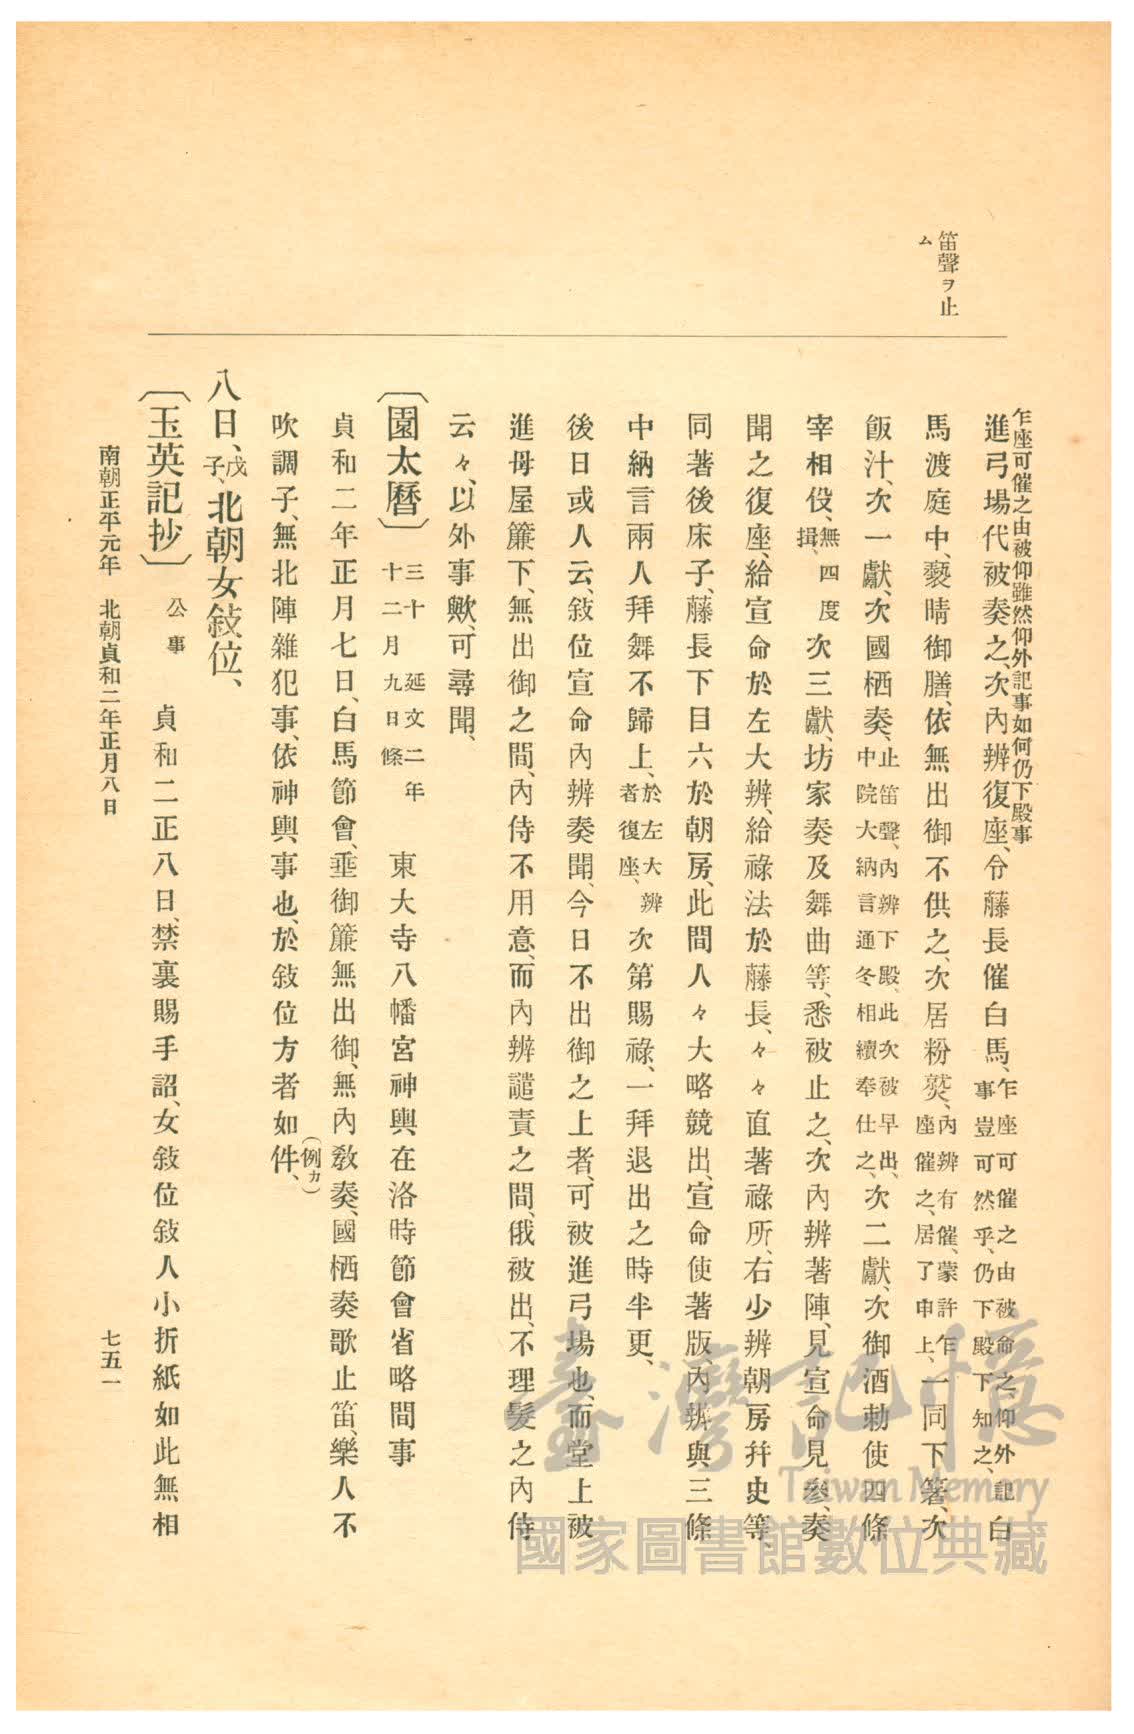 笛聲ヲ止
ム
乍座可催之由被仰雖然仰外記事如何仍下殿事
進弓場代被奏之、次內辨復座、令藤長催白馬、乍座可催之由被命之、仰外記
事豈可然乎、仍下殿下知之、白
馬渡庭中、褻晴御膳、依無出御不供之、次居粉熟、內辨有催、蒙許乍
座催之、居了申上、一同下箸、次
飯汁、次一獻、次國栖奏、止笛聲、內辨下殿、此次被早出、
中院大納言通冬相續奉仕之、次二獻、次御酒勅使四條
宰相伇、無四度
揖、次三獻、坊家奏及舞曲等、悉被止之、次內辨著陣、見宣命見參、奏
聞之復座、給宣命於左大辨、給祿法於藤長、々々直著祿所、右少辨朝房幷史等、
同著後床子、藤長下目六於朝房、此間人々大略競出、宣命使著版、內辨與三條
中納言兩人拜舞不歸上、於左大辨
者復座、次第賜祿、一拜退出之時半更、
後日或人云、敍位宣命內辨奏聞、今日不出御之上者、可被進弓場也、而堂上被
進母屋簾下、無出御之間、內侍不用意、而內辨譴責之間、俄被出、不理髮之內侍
云々、以外事歟、可尋聞、
〔園太曆〕三十 延文二年
十二月九日條 東大寺八幡宮神輿在洛時節會省略間事
貞和二年正月七日、白馬節會、垂御簾無出御、無內敎奏、國栖奏歌止笛、樂人不
吹調子、無北陣雜犯事、依神輿事也、於敍位方者如件、
(例カ)
八日、戊
子、北朝女敍位、
〔玉英記抄〕公事 貞和二正八日、禁裏賜手詔、女敍位敍人小折紙如此無相
南朝正平元年 北朝貞和二年正月八日
七五一
臺灣記憶
Taiwan Memory
國家圖書館數位典藏